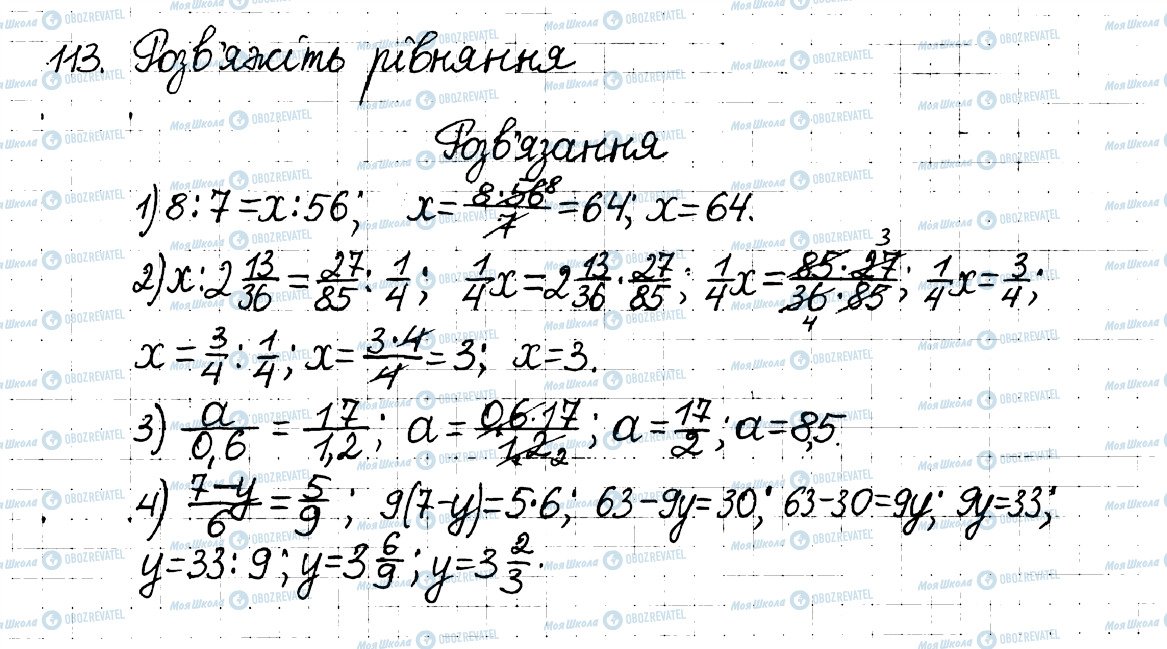 113. Розв'яжіть рівняння
Розв'язання
1) 8:7=x:56; x=8·56/7=64; x=64.
2) x:2 13/36=27/85:1/4; 1/4x=2 13/36·27/85; 1/4x=85·27/36·85; 1/4x=3/4;
x=3/4:1/4; x=3·4/4=3; x=3.
3) a/0,6=17/1,2; a=0,6·17/1,2; a=17/2; a=8,5.
4) 7-y/6=5/9; 9(7-y)=5·6; 63-9y=30; 63-30=9y; 9y=33;
y=33:9; y=3 6/9; y=3 2/3.